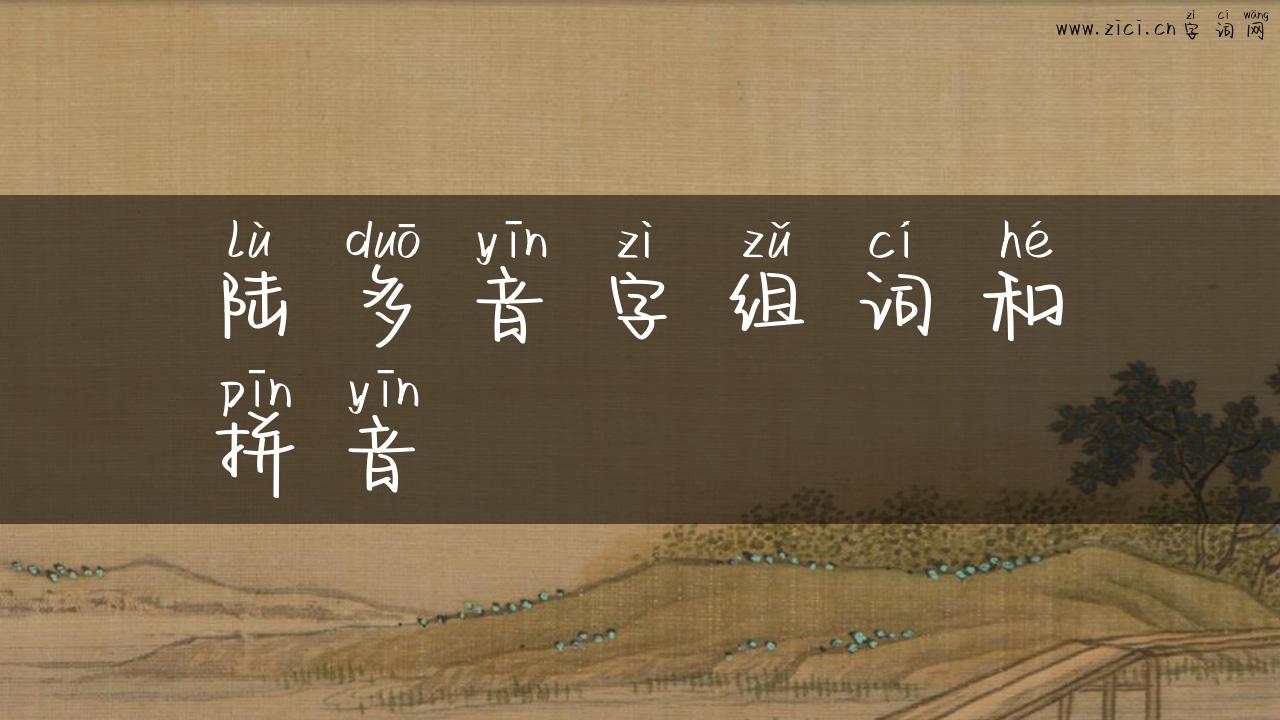 zì cí wǎng
www.zici.cn字词网
lù duō yīn zì zǔ cí hé
陆多音字组词和
pīn yīn
拼音